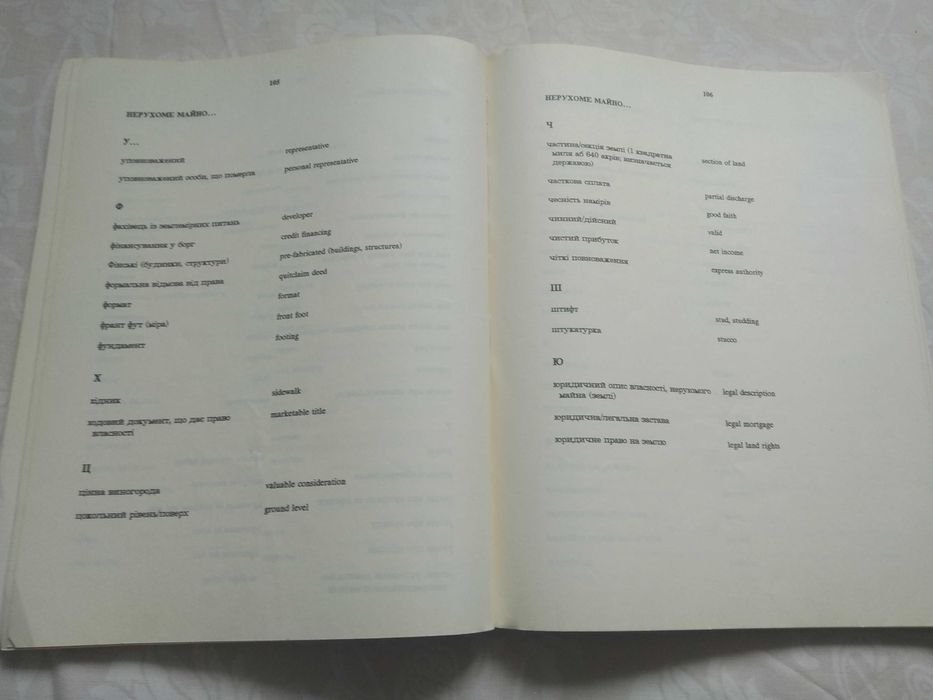 105
НЕРУХОМЕ МАЙНО...
У...
уповноважений representative
уповноважений особи, що померла personal representative
Ф
фахівець із землемірних питань developer
фінансування у борг credit financing
Фінські (будинки, структури) pre-fabricated (buildings, structures)
формальна відмова від права quitclaim deed
формат format
франт фут (міра) front foot
фундамент footing
Х
хідник sidewalk
ходовий документ, що дає право marketable title
власності
Ц
цінна виногорода valuable consideration
цокольний рівень/поверх ground level
106
НЕРУХОМЕ МАЙНО...
Ч
частина/секція землі (1 квадратна
миля аб 640 акрів; визначається section of land
державою)
часткова сплата partial discharge
чесність намірів good faith
чинний/дійсний valid
чистий прибуток net income
чіткі повноваження express authority
Ш
штифт stud, studding
штукатурка stucco
Ю
юридичний опис власності, нерухомого legal description
майна (землі)
юридична/легальна застава legal mortgage
юридичне право на землю legal land rights